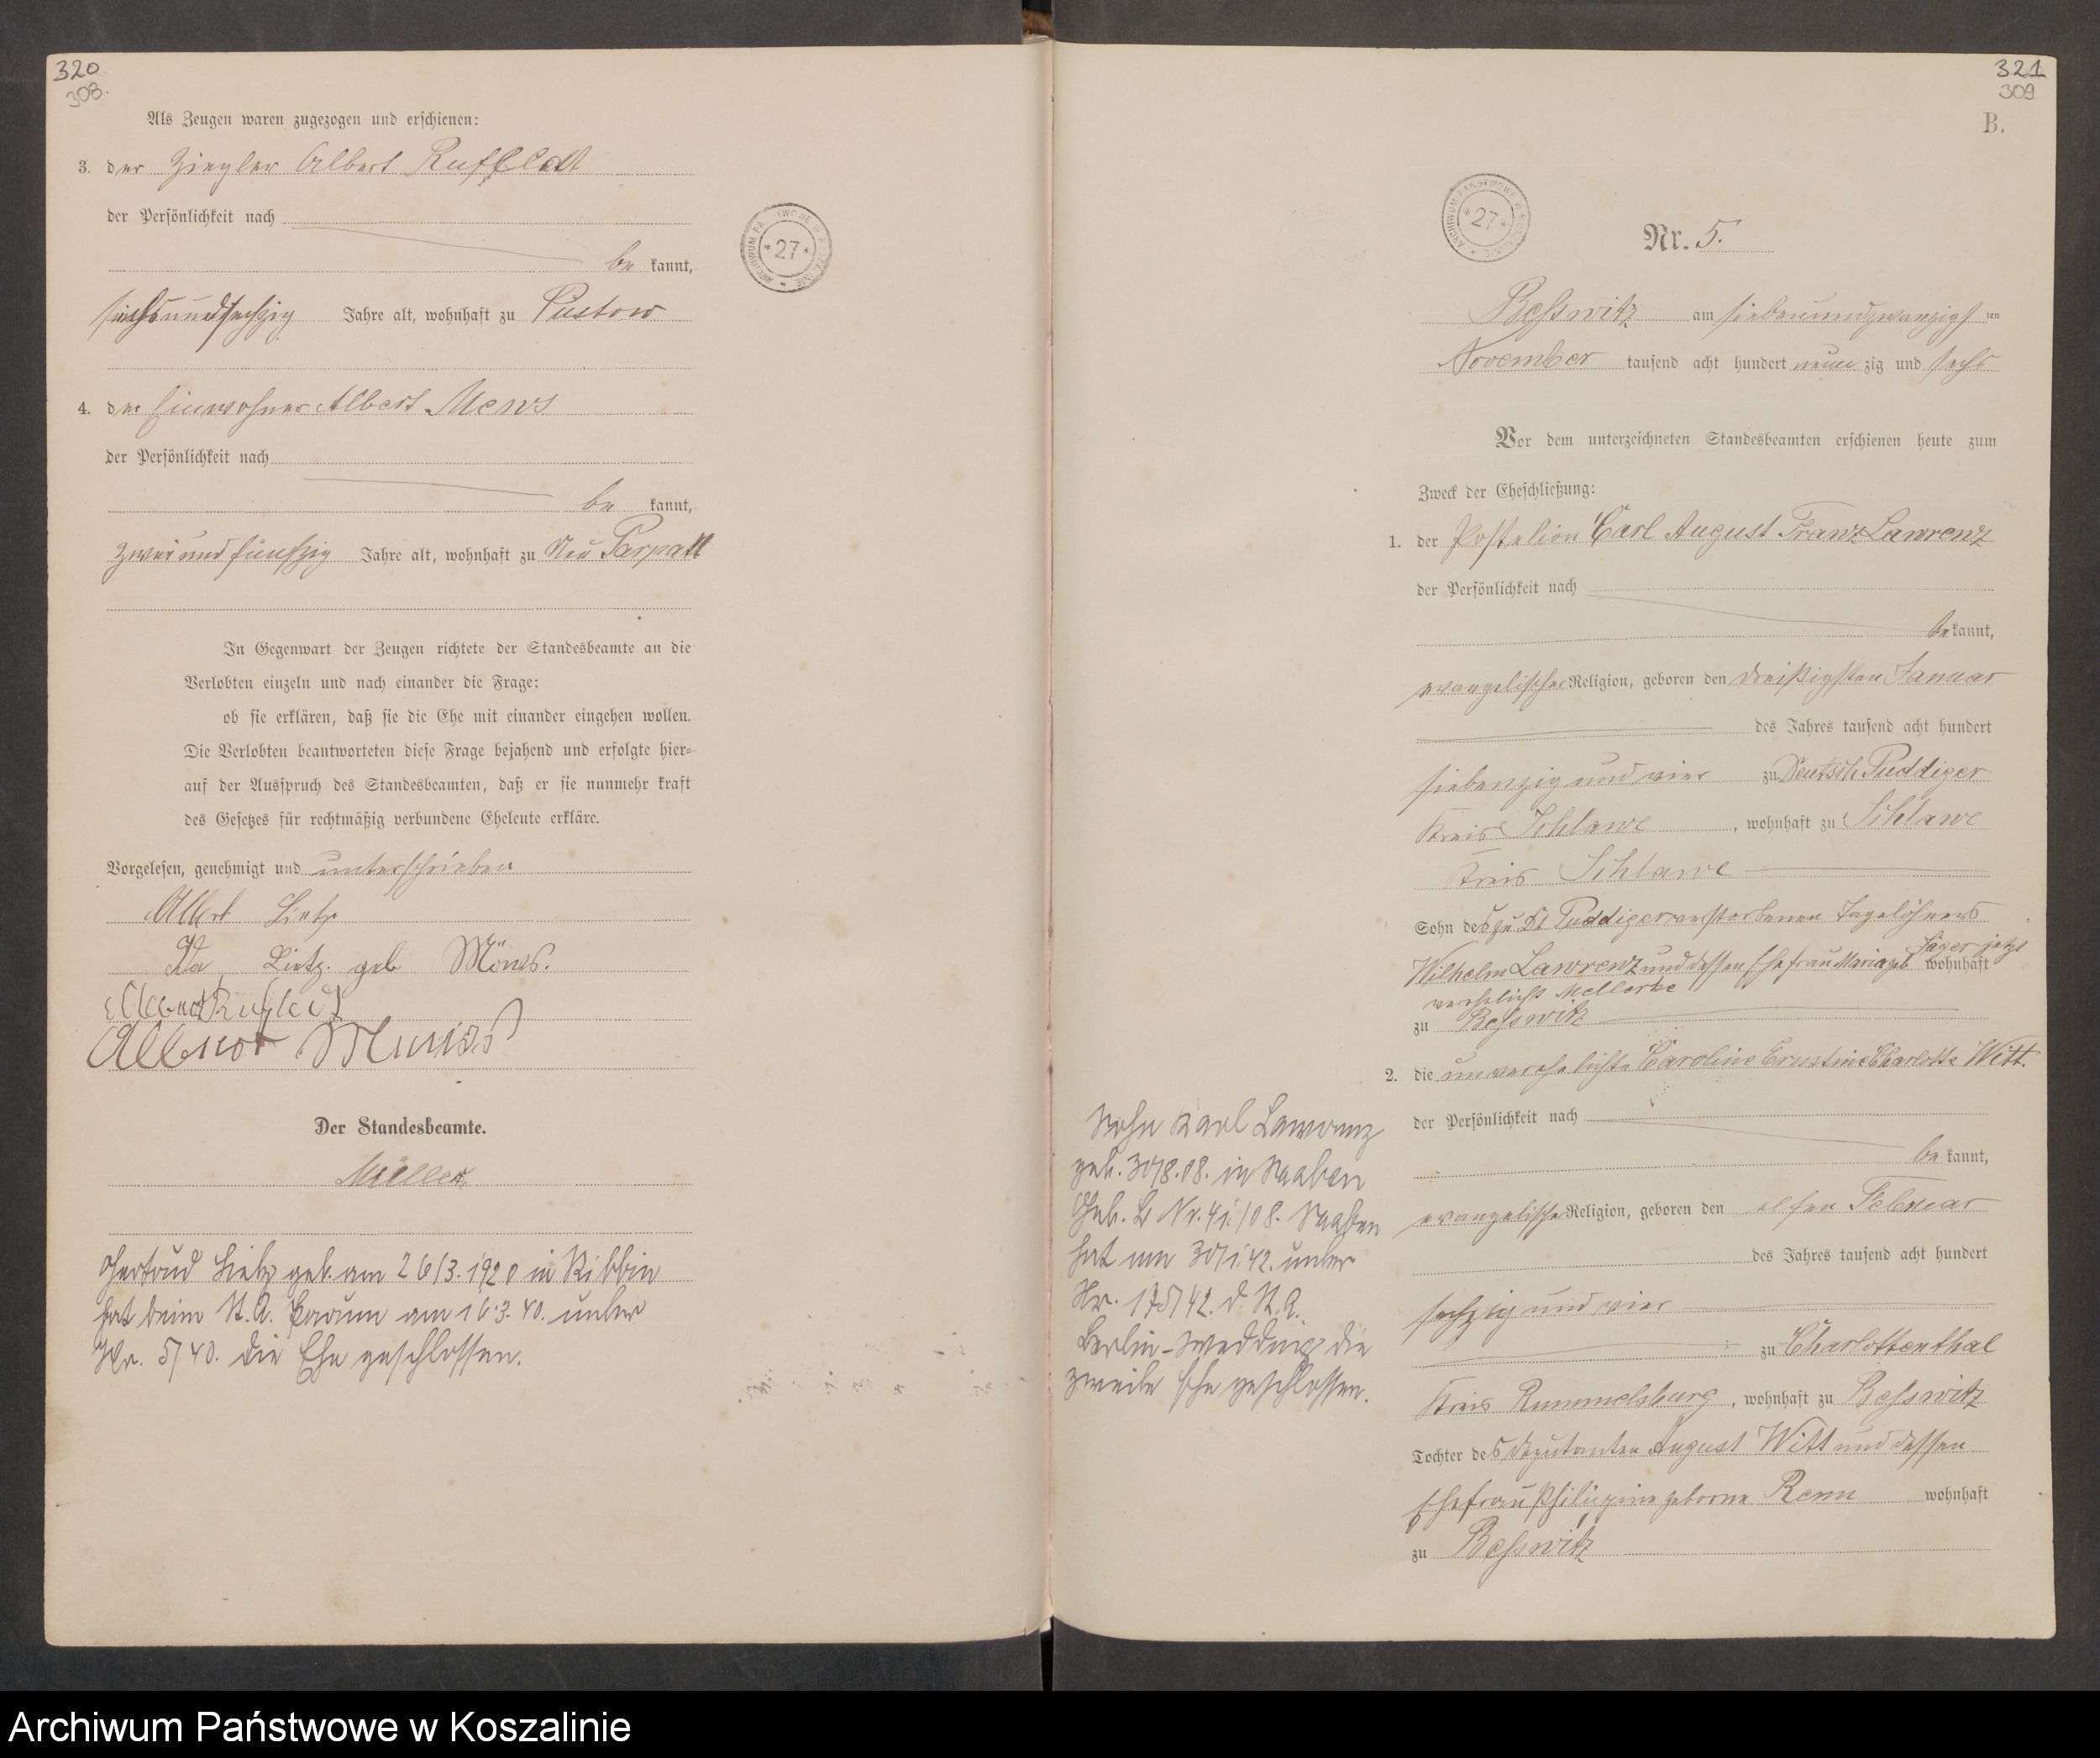 320
308.
Als Zeugen waren zugezogen und erschienen:
3. der Ziegler Albert Ruffeldt
der Persönlichkeit nach
be kannt,
sechsundsechzig Jahre alt, wohnhaft zu Püstow
4. der Einwohner Albert Mews
der Persönlichkeit nach
be kannt,
zwei und fünfzig Jahre alt, wohnhaft zu Neu Parpatt
In Gegenwart der Zeugen richtete der Standesbeamte an die
Verlobten einzeln und nach einander die Frage:
ob sie erklären, daß sie die Ehe mit einander eingehen wollen.
Die Verlobten beantworteten diese Frage bejahend und erfolgte hier-
auf der Ausspruch des Standesbeamten, daß er sie nunmehr kraft
des Gesetzes für rechtmäßig verbundene Eheleute erkläre.
Vorgelesen, genehmigt und unterschrieben
Albert Lietz
Ida Lietz. geb Möws.
Albert Ruffeldt
Albert
Der Standesbeamte.
Müller.
Gertrud Lietz geb. am 26/3.1920 in Ribbin
hat beim St. A. am 16.3.40. unter
Nr. 5/40. die Ehe geschlossen.
321
309
B.
Nr. 5.
Beßwitz am siebenundzwanzigs ten
November tausend acht hundert neun zig und sechs
Vor dem unterzeichneten Standesbeamten erschienen heute zum
Zweck der Eheschließung:
1. der Postelion Carl August Franz Lawrenz
der Persönlichkeit nach
be kannt,
evangelischer Religion, geboren den dreißigsten Januar
des Jahres tausend acht hundert
siebenzig und vier zu Deutsch Puddiger
Kreis Schlawe, wohnhaft zu Schlawe
Kreis Schlawe
Sohn des zu Dt Puddiger verstorbenen Tagelöhners
Wilhelm Lawrenz und dessen Ehefrau Maria geb Jäger jetzt wohnhaft
verehelicht Mellerke
zu Beßwitz
2. die unverehelichte Caroline Ernstine Charlotte Witt.
der Persönlichkeit nach
be kannt,
evangelischer Religion, geboren den elften Februar
des Jahres tausend acht hundert
sechzig und vier
zu Charlottenthal
Kreis Rummelsburg, wohnhaft zu Beßwitz
Tochter des Deputanten August Witt und dessen
Ehefrau Philippine geborne Renn wohnhaft
zu Beßwitz
Sohn Karl Lawrenz
geb. 30/8.08. in Saaben
Geb. B Nr. 41/08. Saaben
hat am 30/1.42. unter
Nr. 175/42. d. St. A.
Berlin-Wedding die
zweite Ehe geschlossen.
ARCHIWUM PAŃSTWOWE W KOSZALINIE
* 27 *
ARCHIWUM PAŃSTWOWE W KOSZALINIE
* 27 *
Archiwum Państwowe w Koszalinie